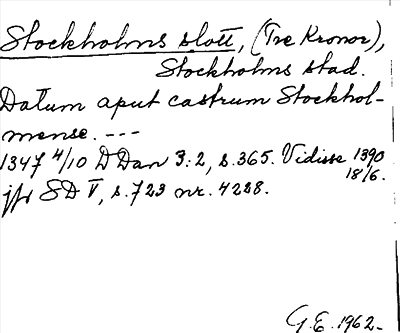 Stockholms slott, (Tre Kronor),
Stockholms stad.
Datum aput castrum Stockhol-
mense. ---
1347 4/10 DDan 3:2, s. 365. Vidisse 1390 18/6.
jfr SD V, s. 723 nr. 4228.
G.E. 1962.